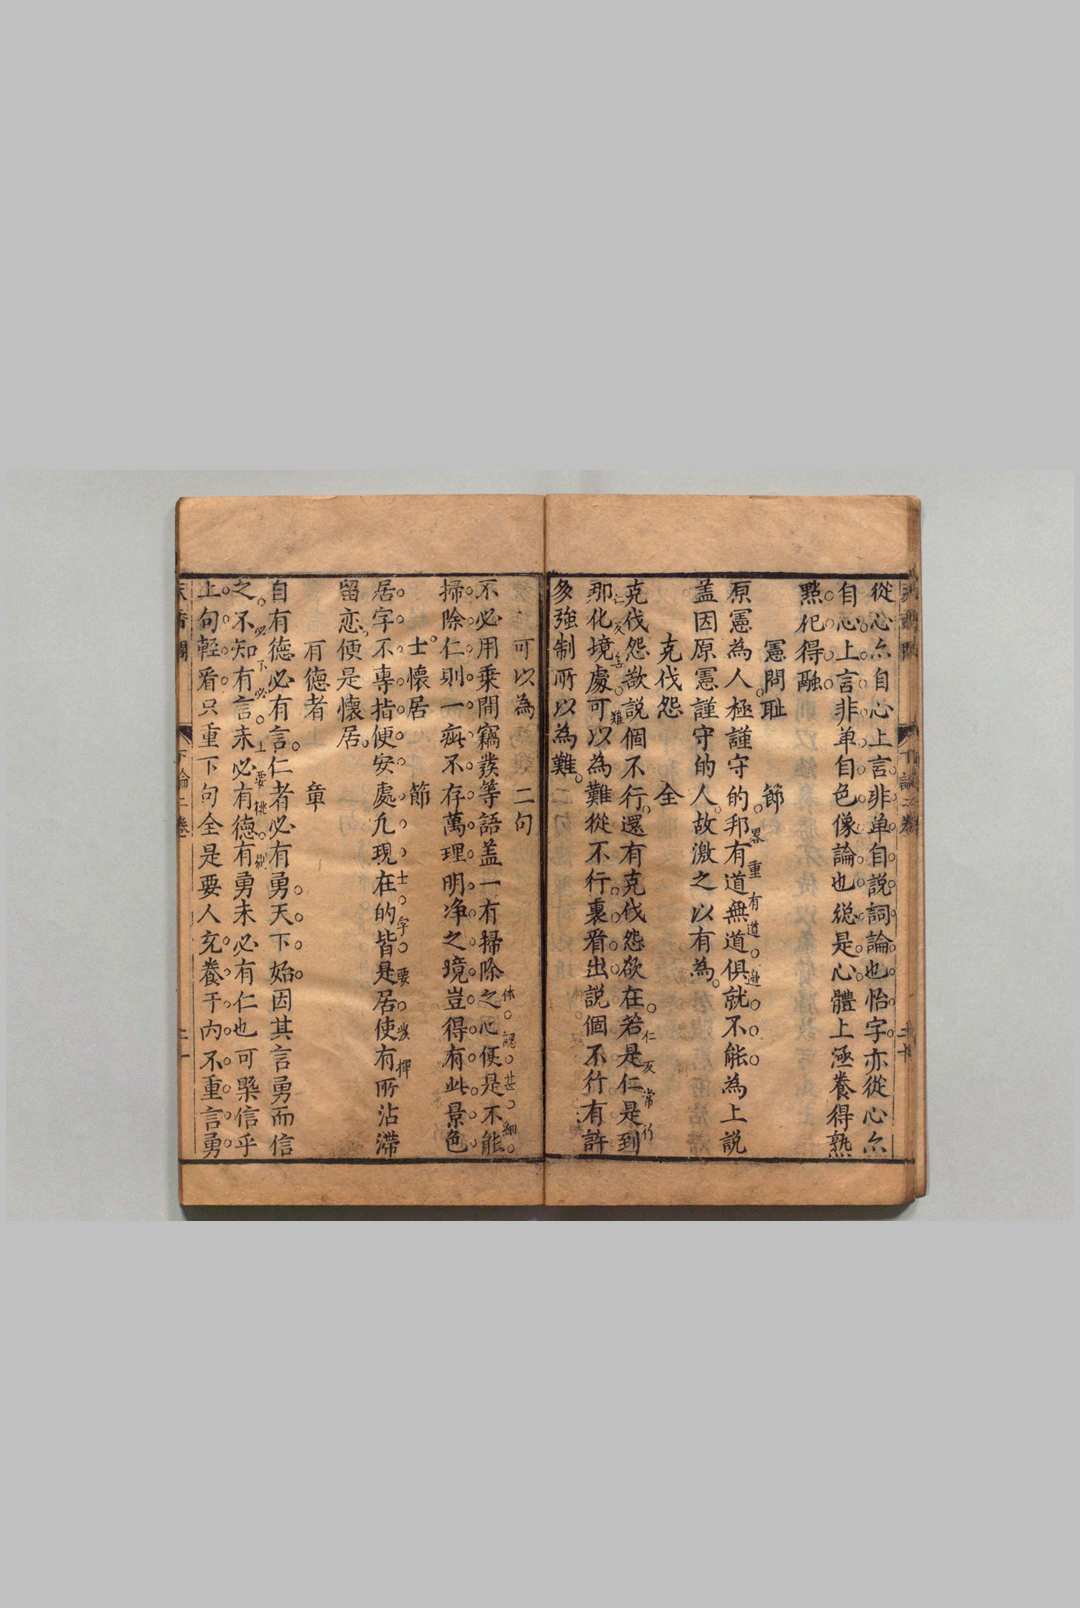 從心尔自心上言非单自說詞論也怡字亦從心尔
自心上言非单自色像論也総是心體上涵養得熟
㸃化得融
憲問耻　節
原憲為人極謹守的邦有道無道俱就不能為上説
畧重有道邊
盖因原憲謹守的人故激之以有為
克伐怨　全
克伐怨欲説個不行還有克伐怨欲在若是仁是到
仁反常行
那化境處可以為難從不行裏看出説個不行有許
多強制所以為難
可以為　二句
不必用乘開竊發等語盖一有掃除之心便是不能
体認甚細
掃除仁則一疵不存萬理明净之境豈得有此景色
士懷居　節
居字不專指便安處凢現在的皆是居使有所沾滯
士字要發揮
留恋便是懷居
有德者　章
自有德必有言仁者必有勇天下始因其言勇而信
之不知有言未必有德有勇未必有仁也可槩信乎
上句軽看只重下句全是要人充養于内不重言勇
下論二卷